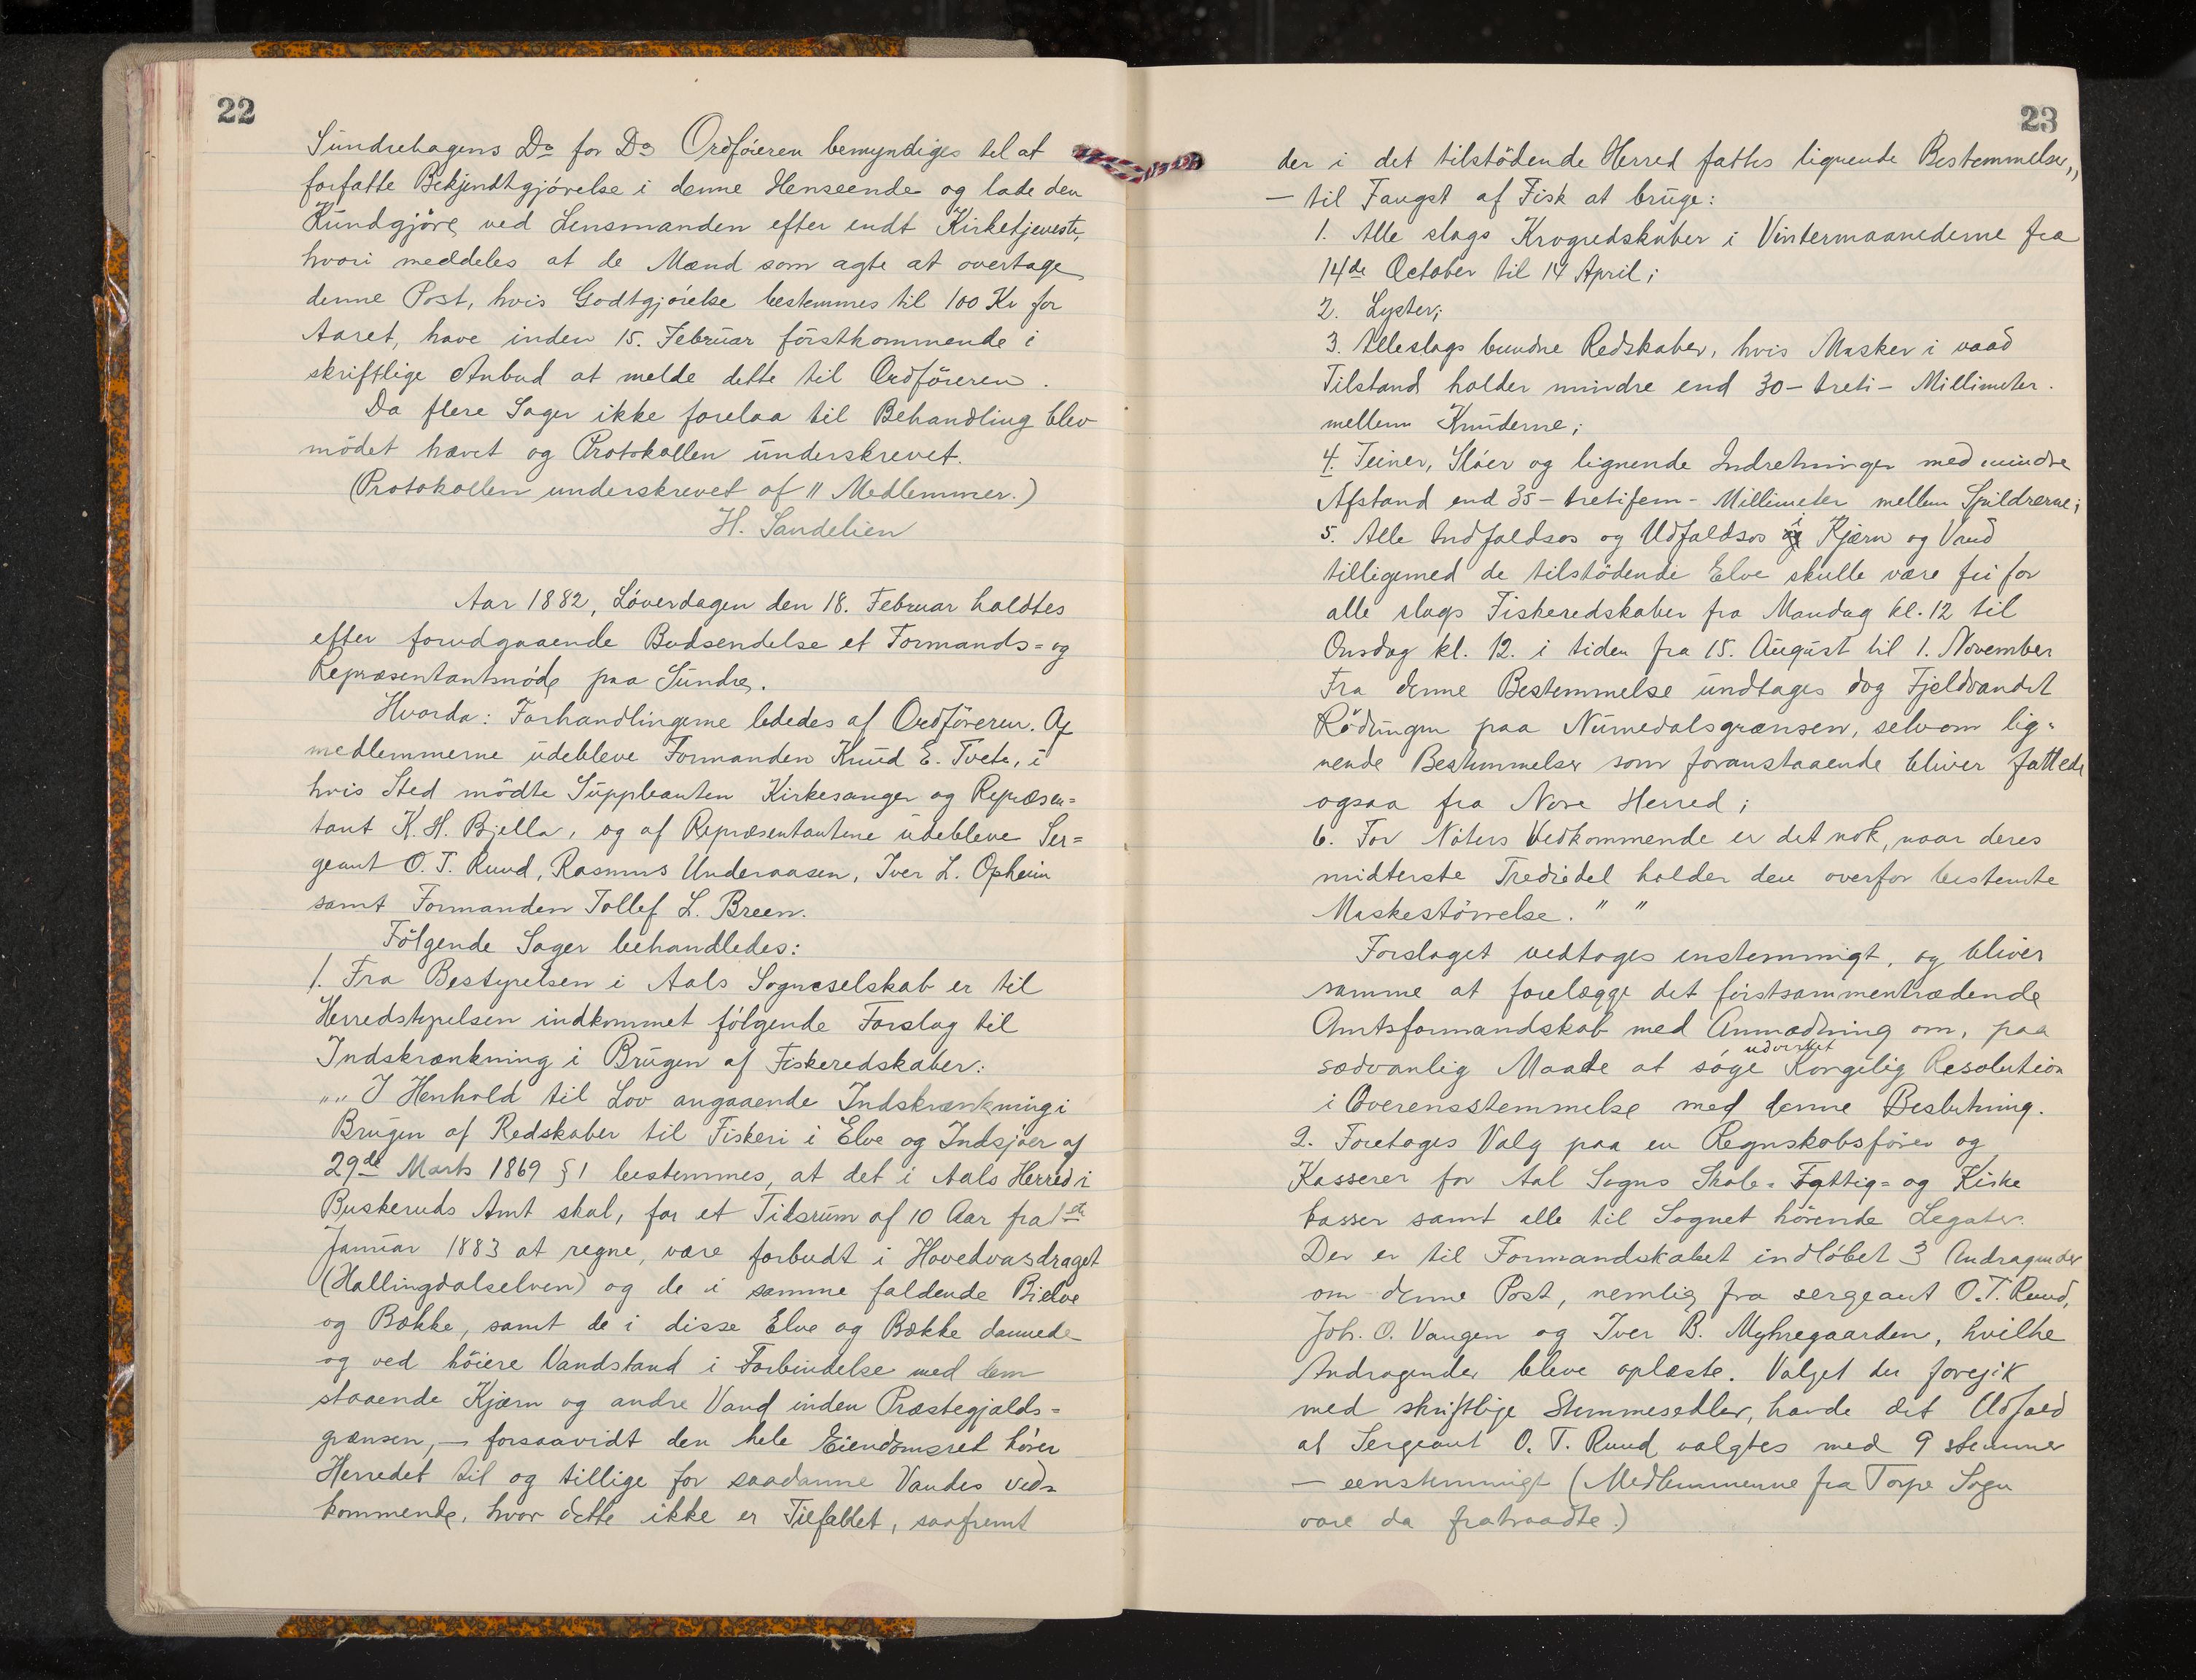 22
Sundrehagens Do for Do Ordföreren bemyndiges til at
forfatte Bekjendtgjörelse i denne Henseende og lade den
Kundgjöre ved Lensmanden efter endt Kirketjeneste,
hvori meddeles at de Mænd som agte at overtage
denne Post, hvis Godtgjörelse bestemmes til 100 Kr for
Aaret, have inden 15. Februar förstkommende i
skriftlige Anbud at melde dette til Ordföreren.
Da flere Sager ikke forelaa til Behandling blev
mödet hævet og Protokollen underskrevet.
(Protokollen underskrevet af 11 Medlemmer.)
H. Sandelien
Aar 1882, Löverdagen den 18. Februar holdtes
efter forudgaaende Budsendelse et Formands= og
Repræsentantmöde paa Sundre.
Hvorda: Forhandlingerne lededes af Ordföreren. Af
medlemmerne udebleve Formanden Knud E. Tvete, i
hvis Sted mödte Suppleanten Kirkesanger og Repræsen=
tant K. H. Bjella, og af Repræsentantene udebleve Ser=
geant O. T. Ruud, Rasmus Underaasen, Iver L. Opheim
samt Formanden Tollef L. Breen.
Fölgende Sager behandledes:
1. Fra Bestyrelsen i Aals Sogneselskab er til
Herredstyrelsen indkommet fölgende Forslag til
Indskrænkning i Brugen af Fiskeredskaber:
"" I Henhold til Lov angaaende Indskrænkning i
Brugen af Redskaber til Fiskeri i Elve og Indsjöer af
29de Marts 1869 § 1 bestemmes, at det i Aals Herred i
Buskeruds Amt skal, for et Tidsrum af 10 Aar fra 1ste
Januar 1883 at regne, være forbudt i Hovedvasdraget
(Hallingdalselven) og de i samme faldende Bielve
og Bække, samt de i disse Elve og Bække dannede
og ved höiere Vandstand i Forbindelse med dem
staaende Kjærn og andre Vand inden Præstegjælds=
grænsen, – forsaavidt den hele Eiendomsret hörer
Herredet til og tillige for saadanne Vandes ved=
kommende, hvor dette ikke er Tilfældet, saafremt
23
der i det tilstödende Herred fattes lignende Bestemmelser,,
– til Fangst af Fisk at bruge:
1. Alle slags Krogredskaber i Vintermaanederne fra
14de October til 14 April;
2. Lyster;
3. Alleslags bundne Redskaber, hvis Masker i vaad
Tilstand holder mindre end 30 – treti – Millimeter.
mellem Knuderne;
4. Teiner, Slöer og lignende Indretninger med mindre
Afstand end 35 – tretifem – Millimeter mellem Spildrerne;
5. Alle Indfaldsos og Udfaldsos i Kjærn og Vand
tilligemed de tilstödende Elve skulle være fri for
alle slags Fiskeredskaber fra Mandag kl. 12 til
Onsdag kl. 12. i tiden fra 15. August til 1. November
Fra denne Bestemmelse undtages dog Fjeldvandet
Rödungen paa Numedalsgrænsen, selvom lig=
nende Bestemmelser som foranstaaende bliver fattede
ogsaa fra Nore Herred;
6. For Nöters Vedkommende er det nok, naar deres
midterste Trediedel holder den overfor bestemte
Maskestörrelse. " "
Forslaget vedtoges enstemmigt, og bliver
samme at forelægge det förstsammentrædende
Amtsformandskab med Anmodning om, paa
sædvanlig Maade at söge udvirket Kongelig Resolution
i Overensstemmelse med denne Beslutning.
2. Foretoges Valg paa en Regnskabsförer og
Kasserer for Aal Sogns Skole= Fattig= og Kirke
kasser samt alle til Sognet hörende Legater.
Der er til Formandskabet indlöbet 3 Andragender
om denne Post, nemlig fra sergeant O. T. Ruud,
Joh. O. Vangen og Iver B. Myhregaarden, hvilke
Andragender bleve oplæste. Valget der foregik
med skriftlige Stemmesedler, havde det Udfald
at Sergeant O. T. Ruud valgtes med 9 stemmer
– eenstemmigt (Medlemmerne fra Torpe Sogn
vare da fratraadte.)